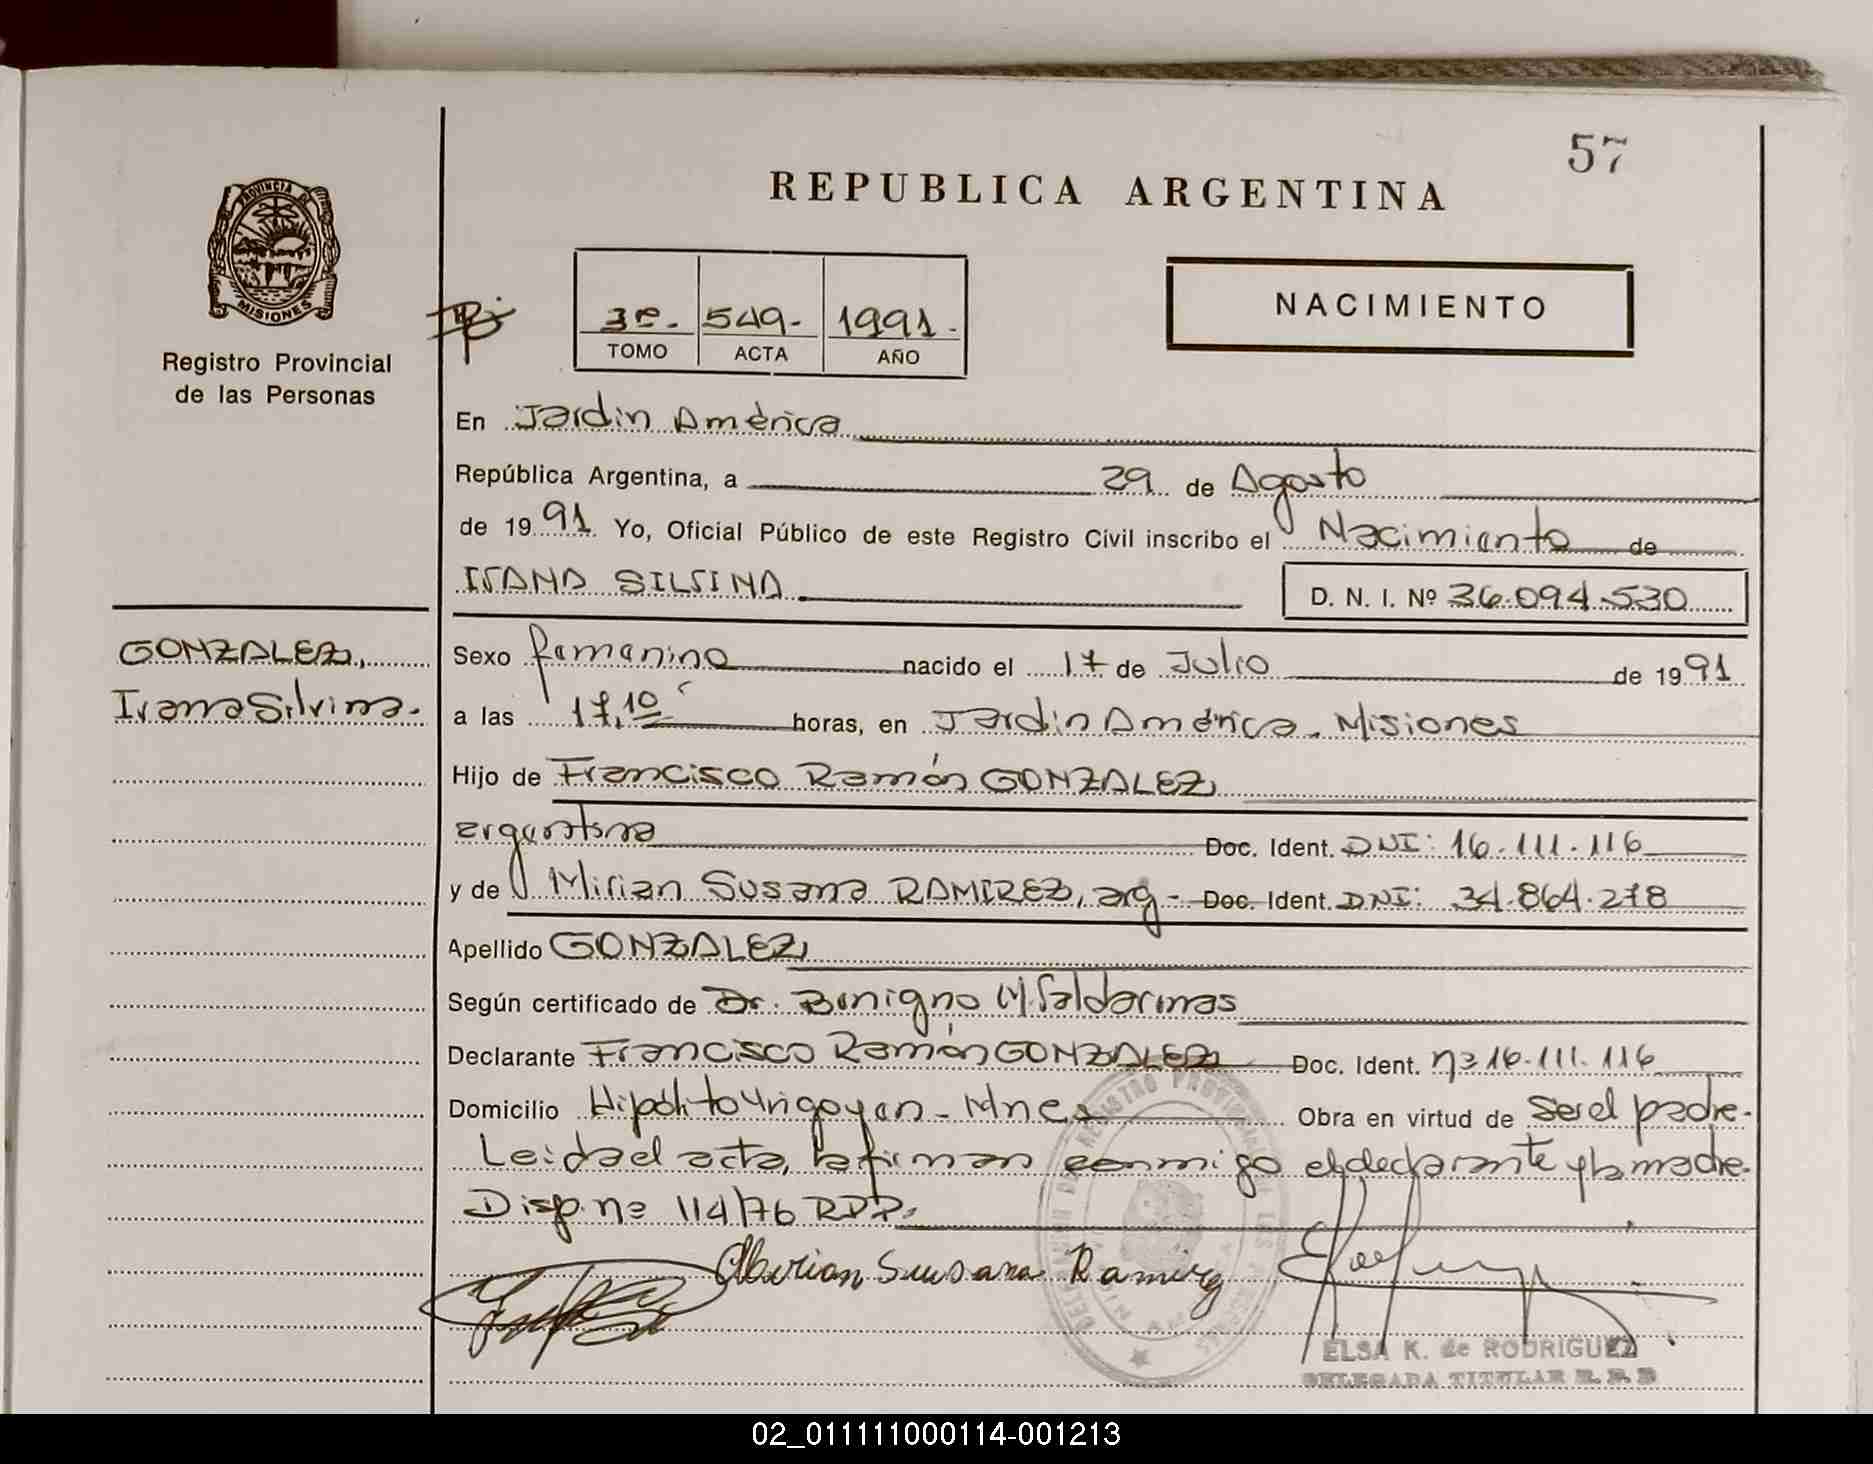 57
REPUBLICA ARGENTINA
PROVINCIA DE
MISIONES
Registro Provincial
de las Personas
3º.- 549.- 1991.-
TOMO ACTA AÑO
NACIMIENTO
En Jardín América
República Argentina, a 29 de Agosto
de 1991 Yo, Oficial Público de este Registro Civil inscribo el Nacimiento de
IVANA SILVINA D. N. I. Nº 36.094.530
GONZALEZ,
Ivana Silvina.
Sexo femenino nacido el 17 de Julio de 1991
a las 17,10 horas, en Jardín América. Misiones
Hijo de Francisco Ramón GONZALEZ,
argentina Doc. Ident. DNI: 16.111.116
y de Mirian Susana RAMIREZ, arg- Doc. Ident. DNI: 34.864.278
Apellido GONZALEZ
Según certificado de Dr. Benigno M. Saldarinas
Declarante Francisco Ramón GONZALEZ Doc. Ident. nº 16.111.116
Domicilio Hipólito Yrigoyen - Mnes Obra en virtud de ser el padre.
Leida el acta, la firman conmigo el declarante y la madre.
Disp. nº 114/76 RPP.
Mirian Susana Ramirez
ELSA K. de RODRIGUEZ
DELEGADA TITULAR R. P. P
02_011111000114-001213